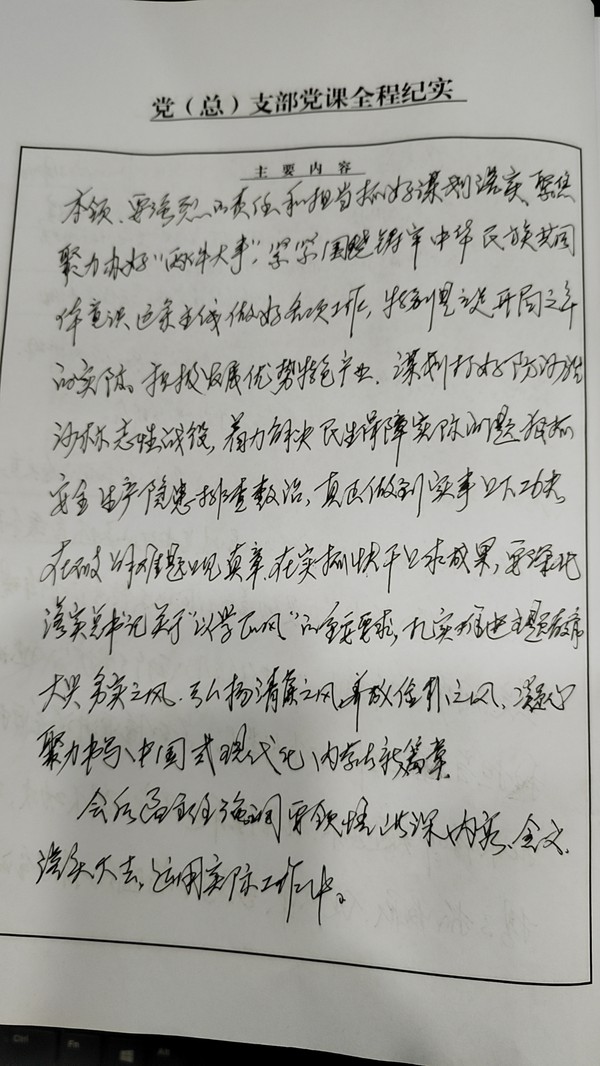 党（总）支部党课全程纪实
主要内容
本领、要强烈的责任和担当抓好谋划落实，聚焦
聚力办好"两件大事"，紧紧围绕铸牢中华民族共同
体意识这条主线做好各项工作，特别是立足开局之年
的实际，积极发展优势特色产业、谋划打好防沙治
沙标志性战役，着力解决民生保障实际问题狠抓
安全生产隐患排查整治，真正做到实事上下功夫
在破解难题上见真章，在实抓快干上求成果，要深化
落实总书记关于"以学正风"的重要要求，扎实推进主题教育
大兴务实之风、弘扬清廉之风、养成俭朴之风，凝心
聚力书写中国式现代化内蒙古新篇章
会后 主任强调要领悟此课内容、含义、
落实 ，运用实际工作中。
Ctrl
Fn
Alt